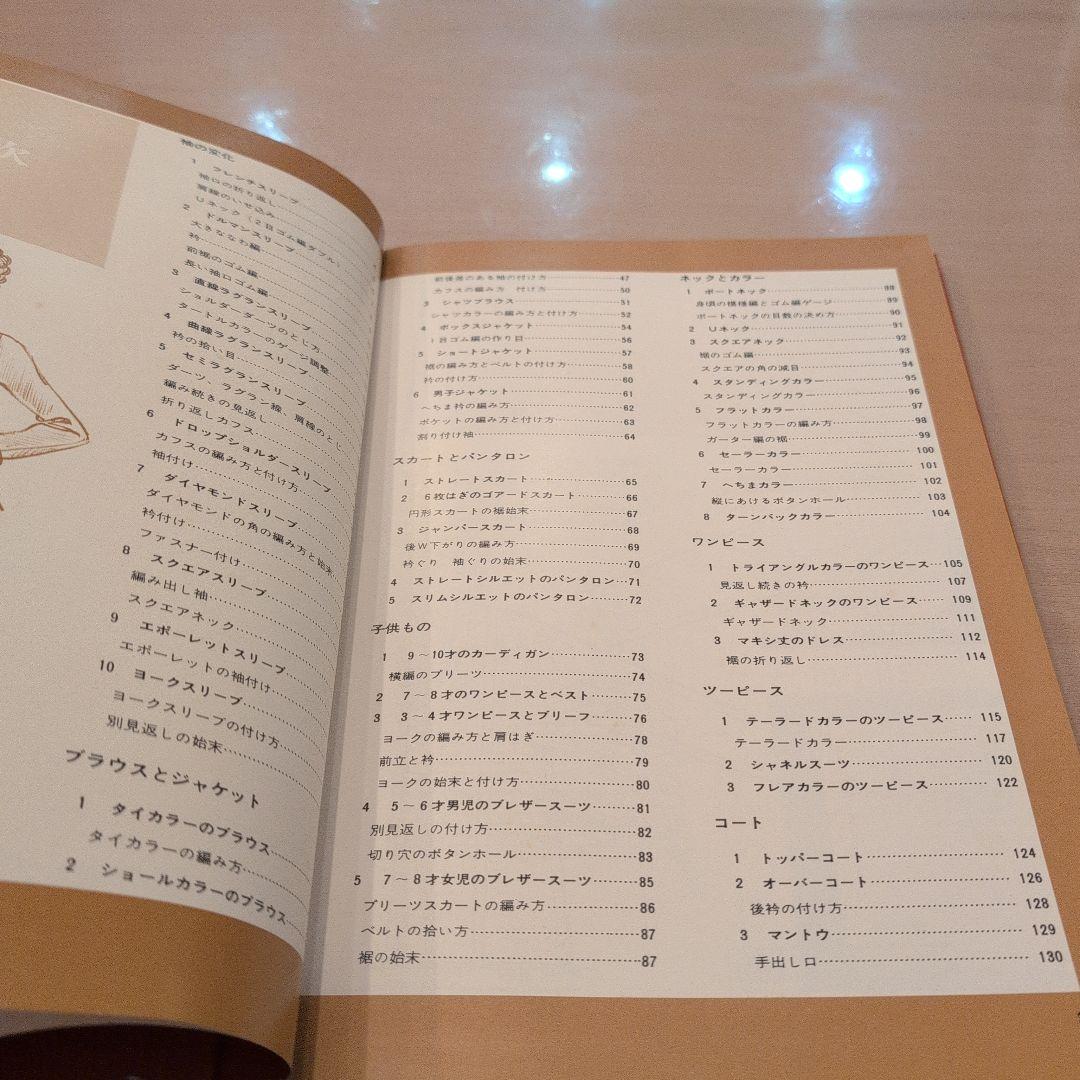 次
袖の変化
1 フレンチスリーブ
袖口の折り返し
肩線のいせ込み
Uネック（2目ゴム編ダブル）
2 ドルマンスリーブ
大きななわ編
衿
前裾のゴム編
長い袖口ゴム編
3 直線ラグランスリーブ
ショルダーダーツのとじ方
タートルカラーのゲージ調整
4 曲線ラグランスリーブ
衿の拾い目
5 セミラグランスリーブ
ダーツ、ラグラン線、肩線のとじ
編み続きの見返し
折り返しカフス
6 ドロップショルダースリーブ
カフスの編み方と付け方
袖付け
7 ダイヤモンドスリーブ
ダイヤモンドの角の編み方と始末
衿付け
ファスナー付け
8 スクエアスリーブ
編み出し袖
スクエアネック
9 エポーレットスリーブ
エポーレットの袖付け
10 ヨークスリーブ
ヨークスリーブの付け方
別見返しの始末
ブラウスとジャケット
1 タイカラーのブラウス
タイカラーの編み方
2 ショールカラーのブラウス
前後差のある袖の付け方 47
カフスの編み方 付け方 50
3 シャツブラウス 51
シャツカラーの編み方と付け方 52
4 ボックスジャケット 54
1目ゴム編の作り目 56
5 ショートジャケット 57
裾の編み方とベルトの付け方 58
衿の付け方 60
6 男子ジャケット 61
へちま衿の編み方 62
ポケットの編み方と付け方 63
割り付け袖 64
スカートとパンタロン
1 ストレートスカート 65
2 6枚はぎのゴアードスカート 66
円形スカートの裾始末 67
3 ジャンパースカート 68
後W下がりの編み方 69
衿ぐり 袖ぐりの始末 70
4 ストレートシルエットのパンタロン 71
5 スリムシルエットのパンタロン 72
子供もの
1 9～10才のカーディガン 73
横編のプリーツ 74
2 7～8才のワンピースとベスト 75
3 3～4才ワンピースとブリーフ 76
ヨークの編み方と肩はぎ 78
前立と衿 79
ヨークの始末と付け方 80
4 5～6才男児のブレザースーツ 81
別見返しの付け方 82
切り穴のボタンホール 83
5 7～8才女児のブレザースーツ 85
プリーツスカートの編み方 86
ベルトの拾い方 87
裾の始末 87
ネックとカラー
1 ボートネック 88
身頃の模様編とゴム編ゲージ 89
ボートネックの目数の決め方 90
2 Uネック 91
3 スクエアネック 92
裾のゴム編 93
スクエアの角の減目 94
4 スタンディングカラー 95
スタンディングカラー 96
5 フラットカラー 97
フラットカラーの編み方 98
ガーター編の裾 99
6 セーラーカラー 100
セーラーカラー 101
7 へちまカラー 102
縦にあけるボタンホール 103
8 ターンバックカラー 104
ワンピース
1 トライアングルカラーのワンピース 105
見返し続きの衿 107
2 ギャザードネックのワンピース 109
ギャザードネック 111
3 マキシ丈のドレス 112
裾の折り返し 114
ツーピース
1 テーラードカラーのツーピース 115
テーラードカラー 117
2 シャネルスーツ 120
3 フレアカラーのツーピース 122
コート
1 トッパーコート 124
2 オーバーコート 126
後衿の付け方 128
3 マントウ 129
手出し口 130